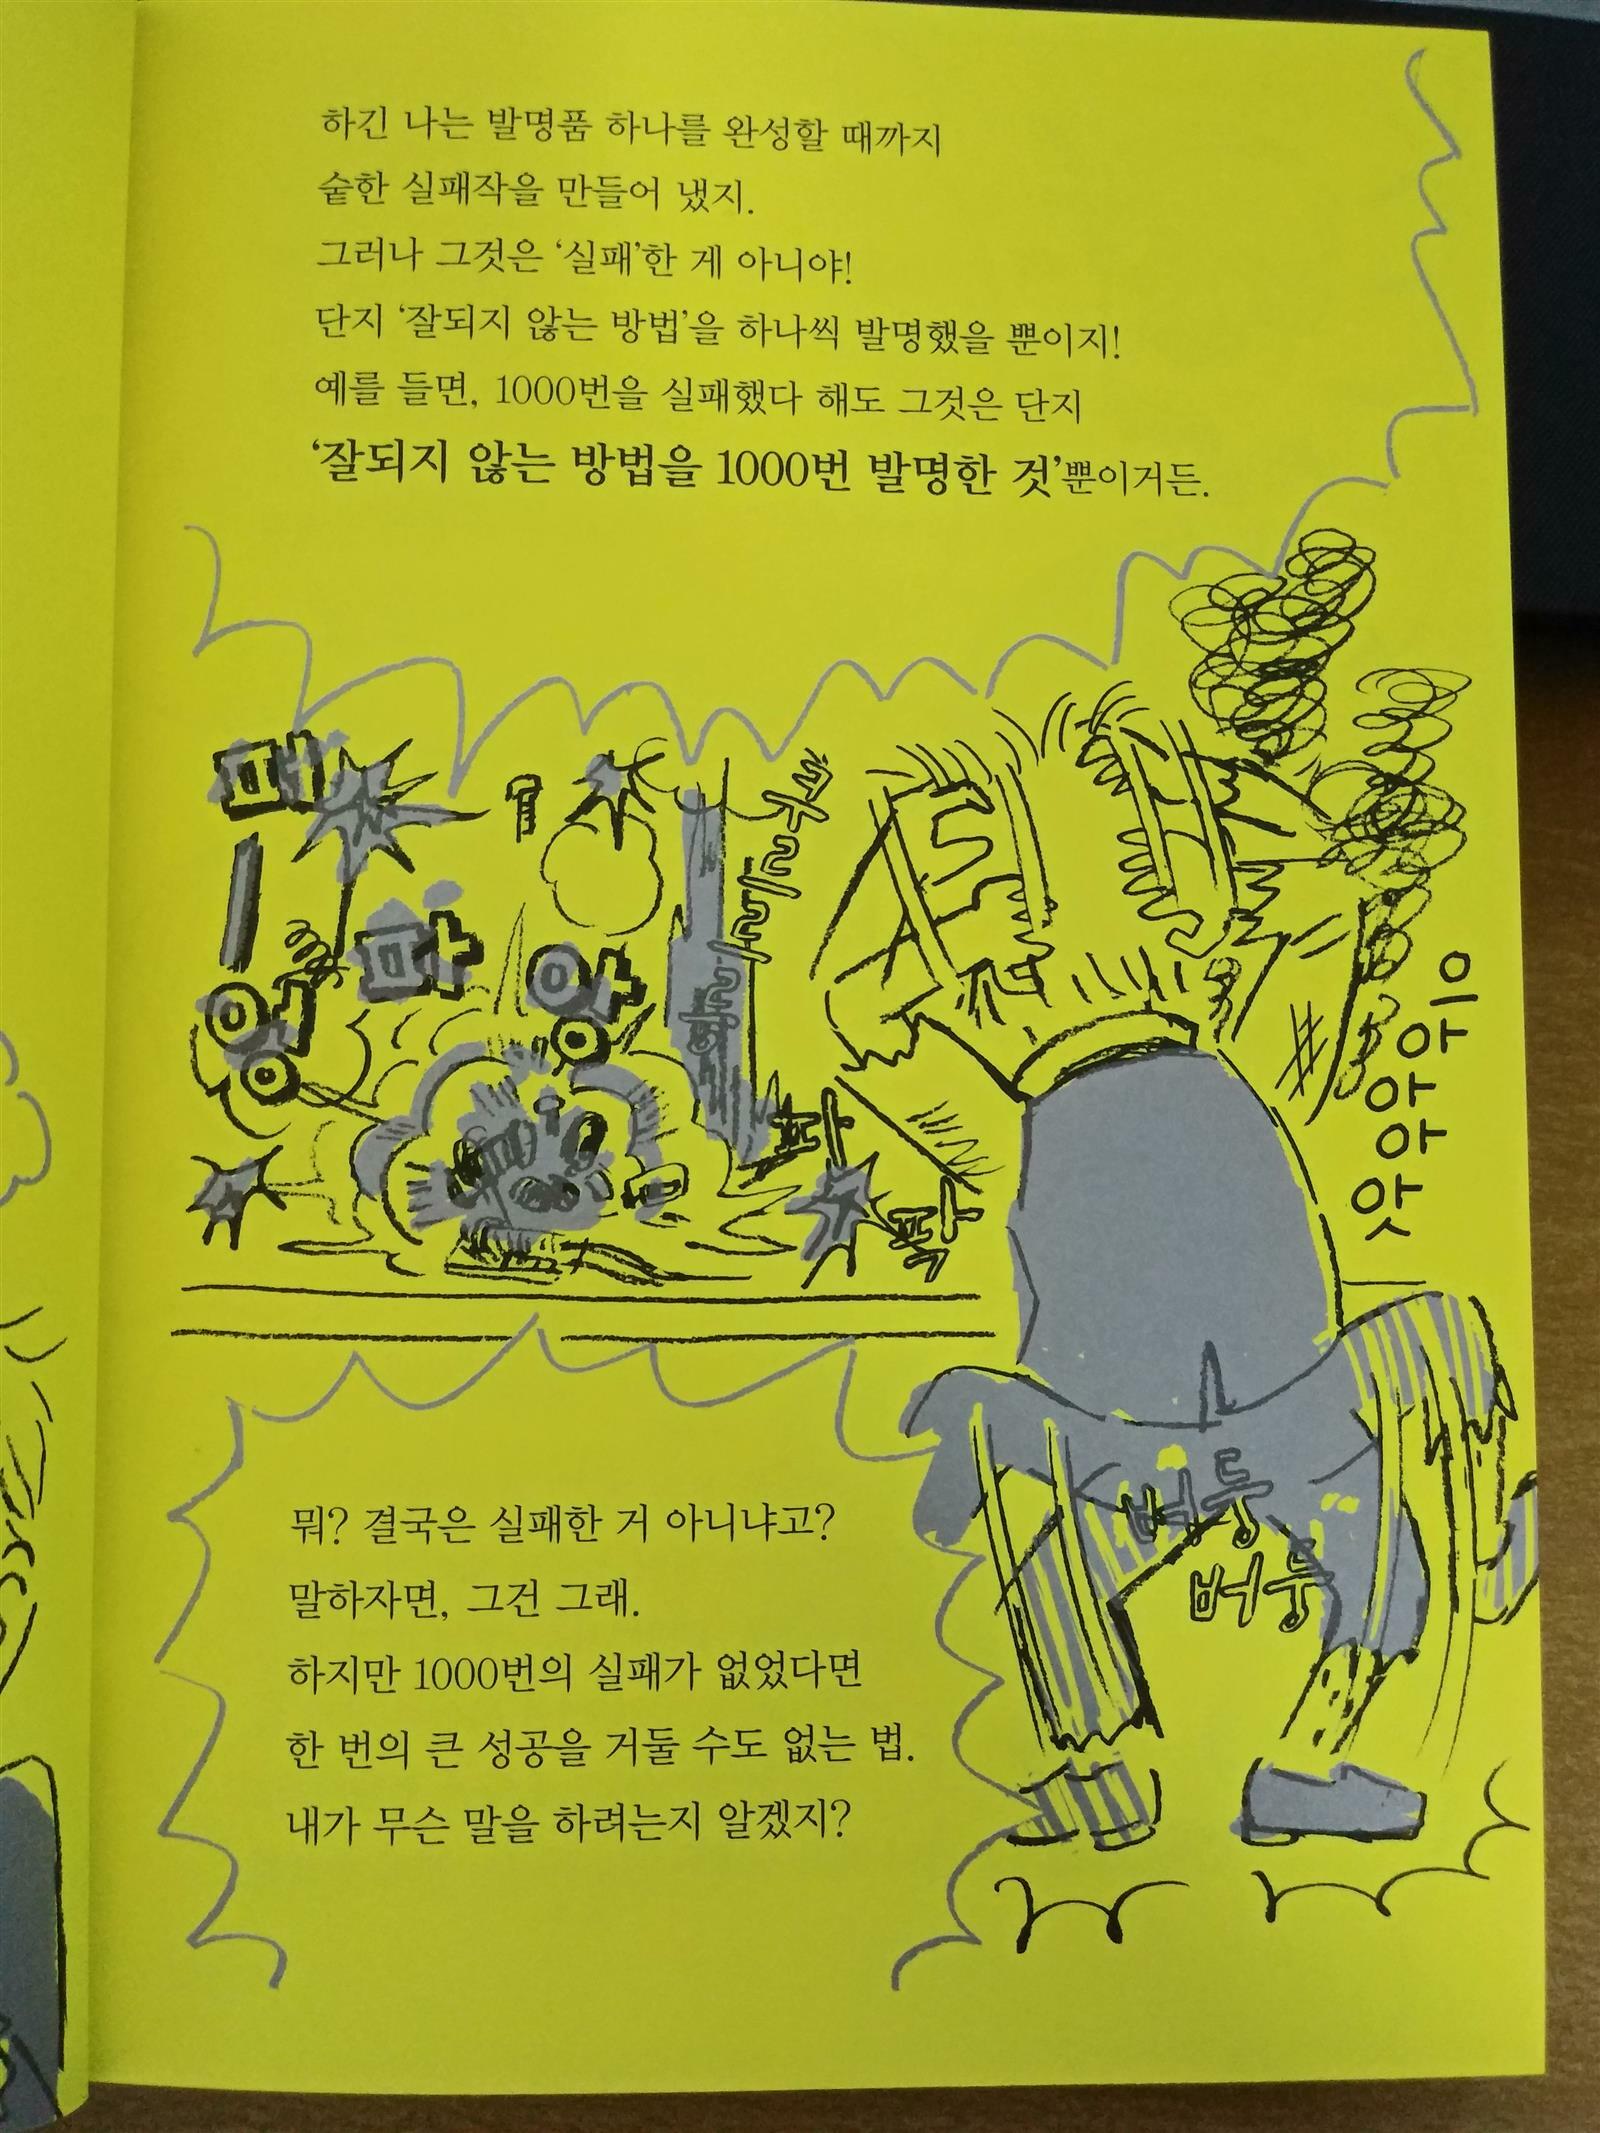 하긴 나는 발명품 하나를 완성할 때까지
숱한 실패작을 만들어 냈지.
그러나 그것은 ‘실패’한 게 아니야!
단지 ‘잘되지 않는 방법’을 하나씩 발명했을 뿐이지!
예를 들면, 1000번을 실패했다 해도 그것은 단지
‘잘되지 않는 방법을 1000번 발명한 것’뿐이거든.
으아아아앗
버둥
버둥
뭐? 결국은 실패한 거 아니냐고?
말하자면, 그건 그래.
하지만 1000번의 실패가 없었다면
한 번의 큰 성공을 거둘 수도 없는 법.
내가 무슨 말을 하려는지 알겠지?